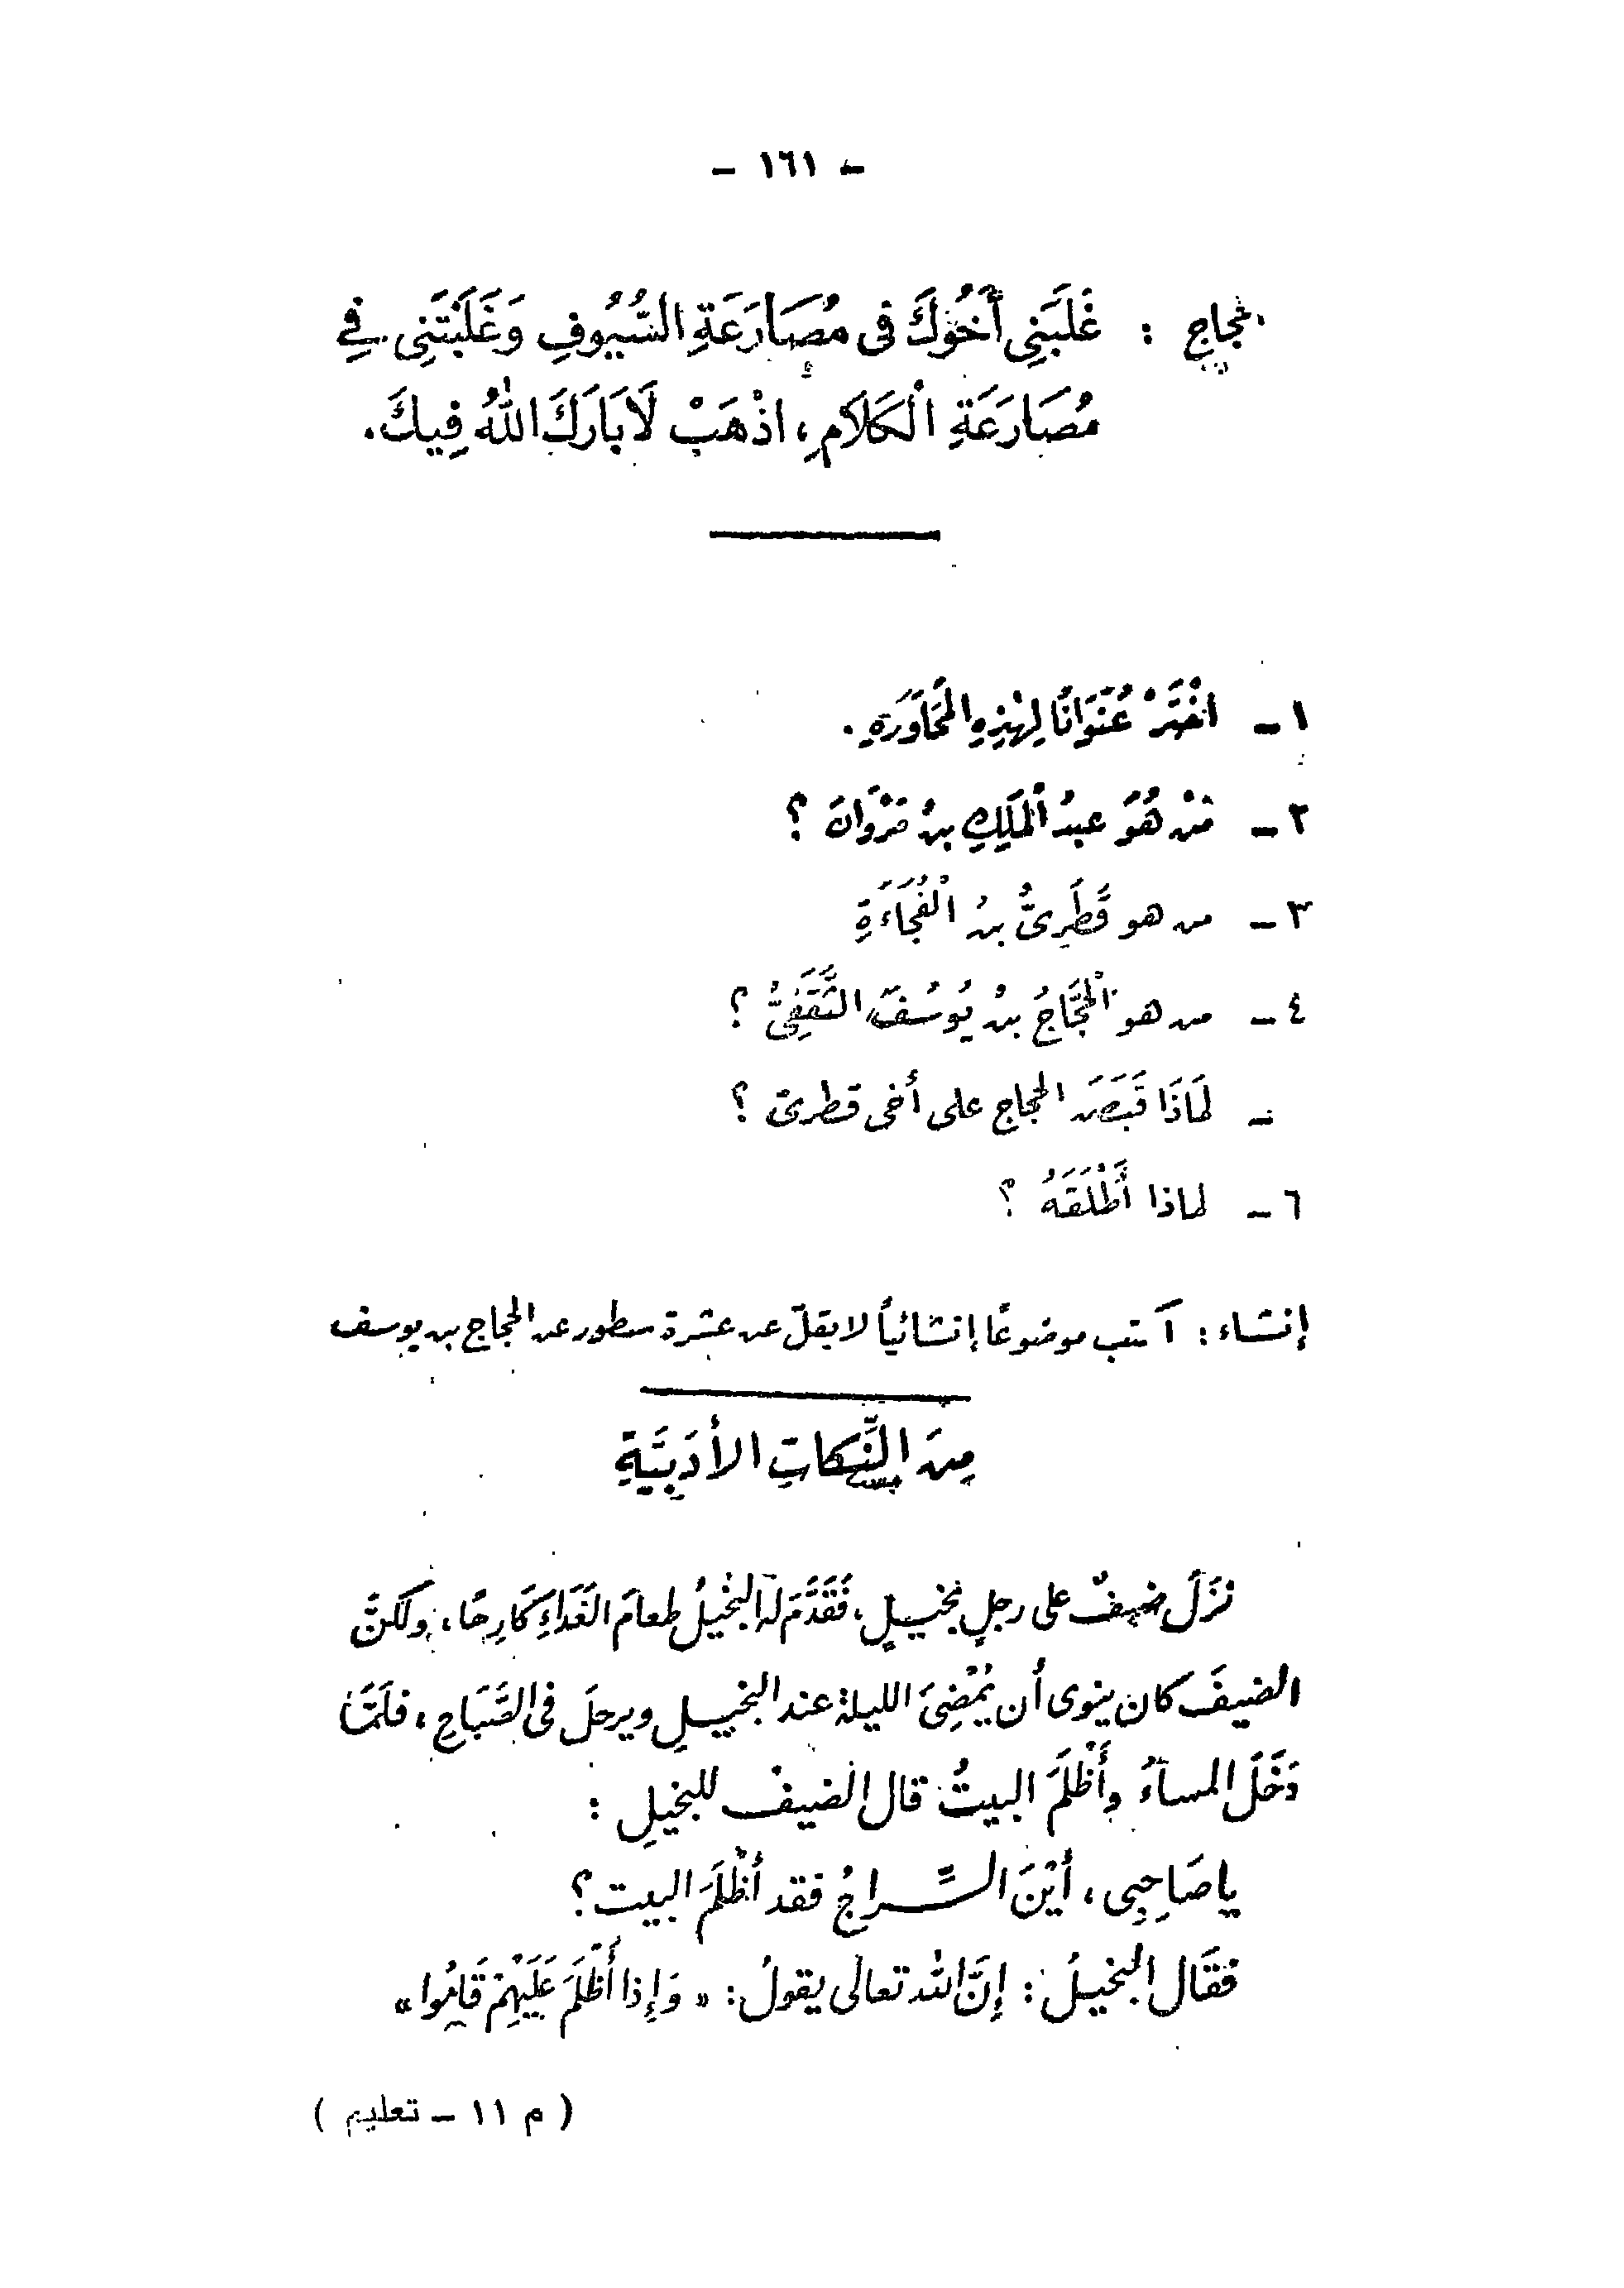 - ١٦١ -
الحجاج : غَلَبَنِي أَخُوكَ فى مُصَارَعَةِ السُّيُوفِ وَغَلَبْتَنِى فِي
مُصَارَعَةِ الْكَلَامِ، اذْهَبْ لَا بَارَكَ اللهُ فِيكَ.
١ - اخْتَرْ عُنْوَانًا لِهٰذِهِ الْمُحَاوَرَةِ.
٢ - مَنْ هُوَ عبدُ الْمَلِكِ بنُ مَرْوَانَ ؟
٣ - من هو قَطَرِىُّ بنُ الْفُجَاءَةِ
٤ - من هو الْحَجَّاجُ بنُ يُوسُفَ الثَّقَفِىُّ ؟
- لِمَاذَا قَبَضَ الحجاج على أخى قطرىّ ؟
٦ - لماذا أَطْلَقَهُ ؟
إنشاء : اكتب موضوعًا إنشائياً لا يقلّ عن عشرة سطور عن الحجاج بن يوسف
مِنَ النِّكَاتِ الأَدَبِيَّةِ
نَزَلَ ضيفٌ على رجلٍ بخيلٍ، فَقَدَّمَ له البخيلُ طعامَ الغَدَاءِ كَارِهًا، ولكنَّ
الضيفَ كان ينوى أن يُمْضِىَ الليلة عند البخيلِ ويرحلَ فى الصَّبَاحِ، فلَمَّا
دَخَلَ المساءُ وأَظْلَمَ البيتُ قال الضيفُ للبخيلِ :
يا صَاحِبِى، أَيْنَ السِّراجُ فقد أَظْلَمَ البيت ؟
فَقَال البخيلُ : إنَّ الله تعالى يقولُ : « وَإِذا أَظْلَمَ عَلَيْهِمْ قَامُوا »
( م ١١ - تعليم )